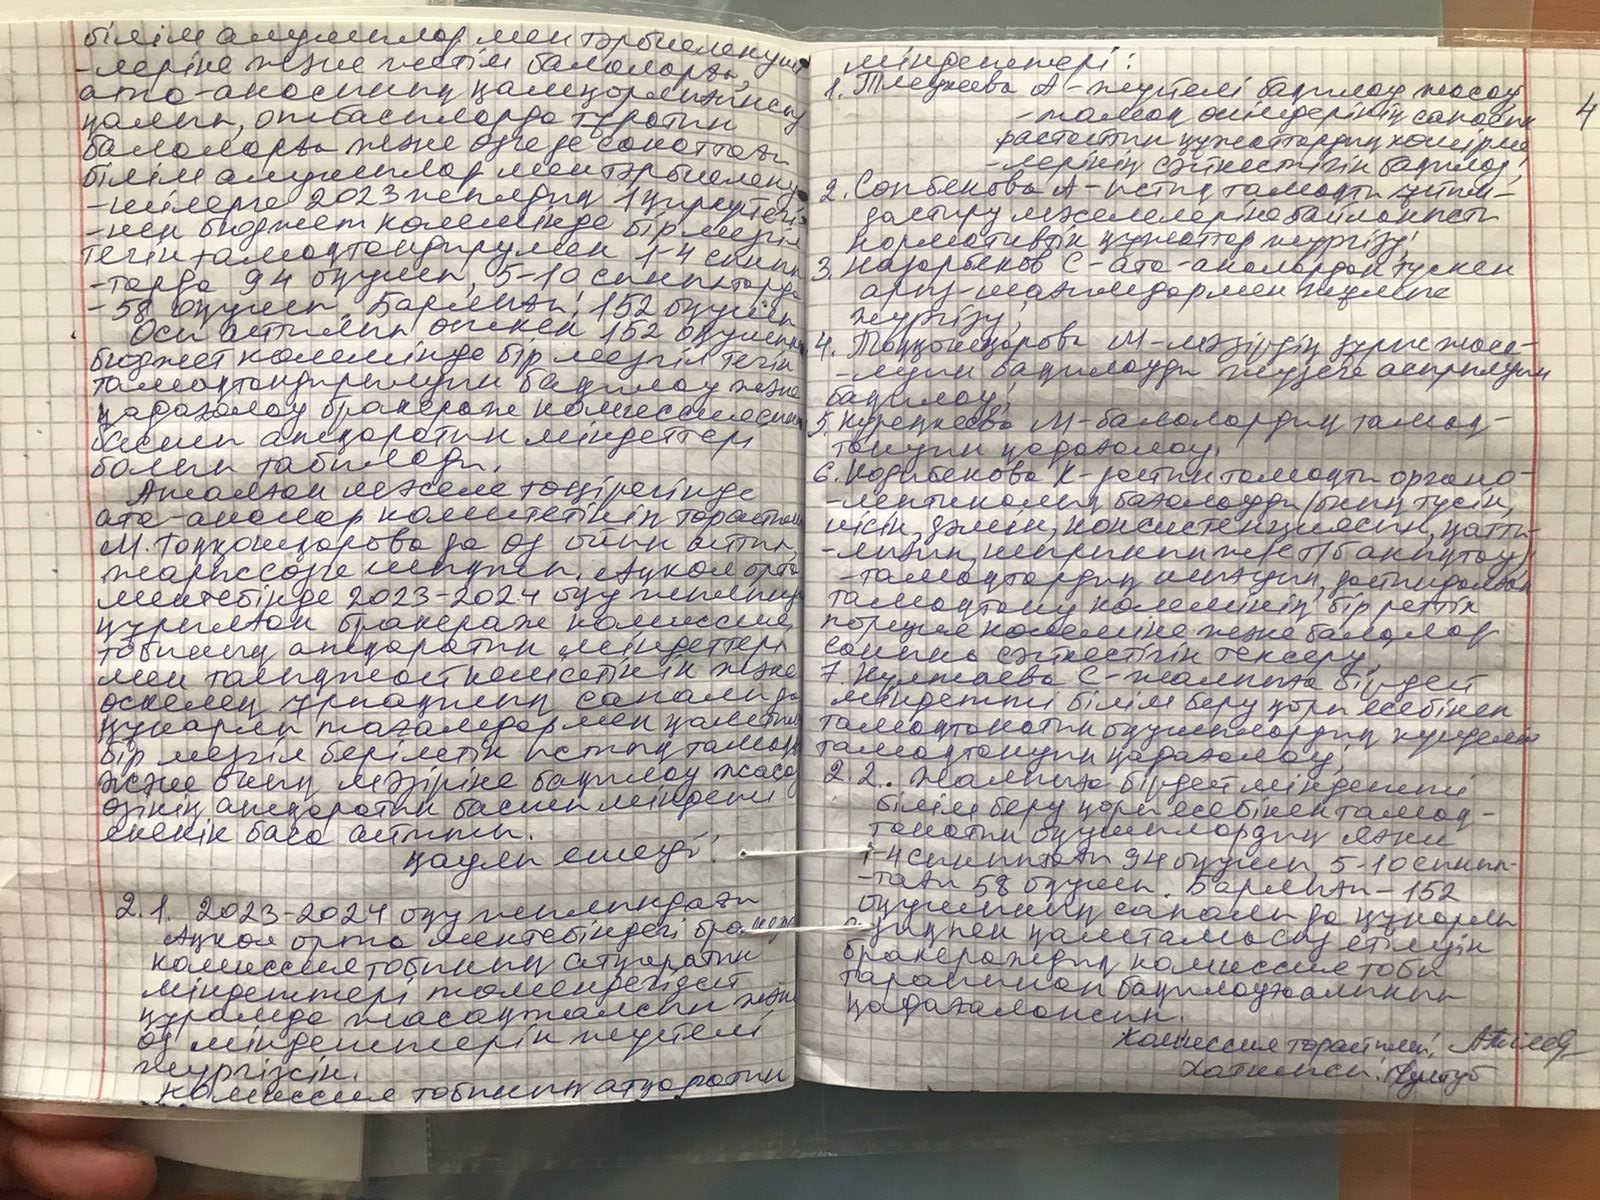 білім алушылар мен тәрбиеленуші
-леріне және жетім балаларға,
ата-анасының қамқорлығынсыз
қалған, отбасыларда тұратын
балаларға және өзге де санаттағы
білім алушылар мен тәрбиелену
-шілерге 2023 жылдың 1 қыркүйегі
-нен бюджет көлемінде бір мезгіл
тегін тамақтандырумен 1-4 сынып
-тарда 94 оқушы, 5-10 сыныптарда
- 58 оқушы. Барлығы: 152 оқушы
Осы айтылып өткен 152 оқушының
бюджет көлемінде бір мезгіл тегін
тамақтандырылуын бақылау және
қадағалау бракераж комиссиясының
басты атқаратын міндеттері
болып табылады.
Аталған мәселе төңірегінде
ата-аналар комитетінің төрайымы
М. Тоққожарова да өз ойын айтып,
жарыссөзге шықты. Ақкөл орта
мектебінде 2023-2024 оқу жылында
құрылған бракераж комиссия
тобының атқаратын міндеттері
мен
өскелең ұрпақтың сапалы да
құнарлы тағамдармен қамтылып
бір мезгіл берілетін ыстық тамақ
және оның мәзіріне бақылау жасау
өзінің атқаратын басты міндеті
екенін баса айтты.
қаулы етеді:
2.1. 2023-2024 оқу жылындағы
Ақкөл орта мектебіндегі бракераж
комиссия тобының атқаратын
міндеттері төмендегідей
құрамда жасақталсын және
өз міндеттерін жүйелі
жүргізсін.
Комиссия тобының атқаратын
міндеттері:
4
1. Тлеукеева А - жүйелі бақылау жасау
- тамақ өнімдерінің сапасын
растайтын құжаттардың көшірме
-лерінің сәйкестігін бақылау;
2. Сопбекова А - ыстық тамақты ұйым-
дастыру мәселелеріне байланысты
нормативтік құжаттар жүргізу;
3. Назарбеков С - ата-аналардан түскен
арыз-шағымдармен жұмыс
жүргізу;
4. Тоққожарова М - мәзірдің дұрыс жаса-
-луын бақылауды жүзеге асырылуын
бақылау;
5. М - балалардың тамақ-
тануын қадағалау;
6. Кадирбекова К - дайын тамақты органо-
-лептикалық бағалауды (оның түсін,
иісін, дәмін, консистенциясын, қатты-
-лығын, шырынын және т) бақылау)
- тамақтардың шығуын, дайындалған
тамақтану көлемінің бір реттік
порция көлеміне және балалар
санына сәйкестігін тексеру;
7. С - жалпыға бірдей
міндетті білім беру қоры есебінен
тамақтанатын оқушылардың күнделікті
тамақтануын қадағалау;
2.2. Жалпыға бірдей міндетті
білім беру қоры есебінен тамақ-
танатын оқушылардың яғни
1-4 сыныптағы 94 оқушы, 5-10 сынып-
-тағы 58 оқушы. Барлығы - 152
оқушының сапалы да құнарлы
қамтамасыз етілуін
бракераждық комиссия тобы
тарапынан бақылауға алынып
қадағалансын.
Комиссия төрайымы:
Хатшысы: